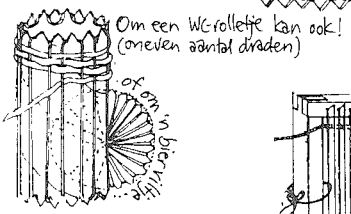 Om een WC-rolletje kan ook!
(oneven aantal draden)
of om 'n bierviltje...